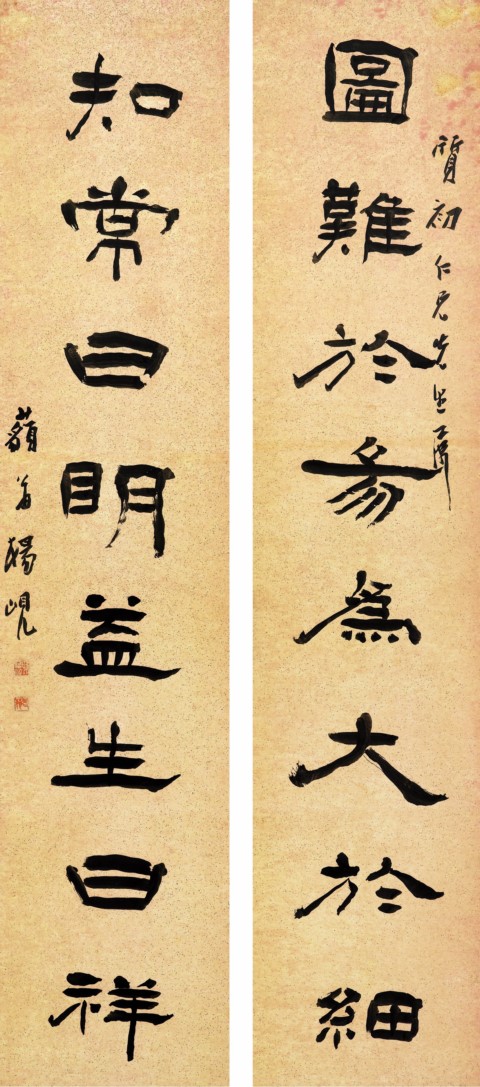 質初仁兄先生
圖難於易為大於細
知常曰明益生曰祥
藐翁楊峴